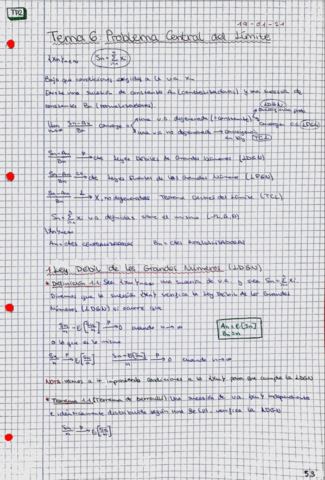 TP2
19-01-21
Tema 6: Problema Central del Límite
{Xn}n∈N Sn = Σ Xi
Bajo qué condiciones exigidas a la v.a. Xn
Existe una sucesión de constantes An (centralizadoras) y una sucesión de
constantes Bn (normalizadoras)
lim Sn-An / Bn converge a una v.a. degenerada (constante)
una v.a. no degenerada → convergencia en ley (TCL)
Sn-An / Bn P→ cte Leyes Débiles de Grandes Números (LDGN)
Sn-An / Bn → cte Leyes Fuertes de los Grandes Números (LFGN)
Sn-An / Bn L→ X, no degenerada Teorema Central del Límite (TCL)
Sn = Σ Xi v.a. definidas sobre el mismo
{Xn}n∈N
An = ctes centralizadoras Bn = ctes normalizadoras
1. Ley Débil de los Grandes Números (LDGN)
• Definición 1.1: Sea {Xn}n∈N una sucesión de v.a. y sea Sn = Σ Xi
Diremos que la sucesión {Xn} verifica la Ley Débil de los Grandes
Números (LDGN) si ocurre que
Sn/n - E[Sn/n] P→ 0 cuando n→∞
An = E[Sn]
Bn = n
o lo que es lo mismo
Sn/n P→ E[Sn/n] Sn-E[Sn] / n P→ 0 cuando n→∞
NOTA: Vamos a ir imponiendo condiciones a la {Xn} para que cumpla la LDGN
• Teorema 1.1 (Teorema de Bernoulli) Una sucesión de v.a. {Xn} independientes
e idénticamente distribuida según una Be(p), verifica la LDGN
Sn/n P→ E[Sn/n]
53